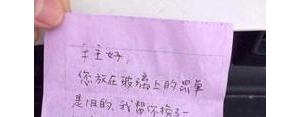 主好,
您放在玻璃上的罚单
是旧的,我帮你换了一